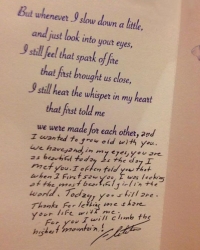 But whenever I slow down a little,
and just look into your eyes,
I still feel that spark of fire
that first brought us close,
I still hear the whisper in my heart
that first told me
we were made for each other, and
I wanted to grow old with you.
We have, and, in my eyes, you are
as beautiful today as the day I
met you. I often told you that
when I first saw you, I was looking
at the most beautiful girl in the
world. Today, you still are.
Thanks for letting me share
your life with me.
For you I will climb the
highest mountain!